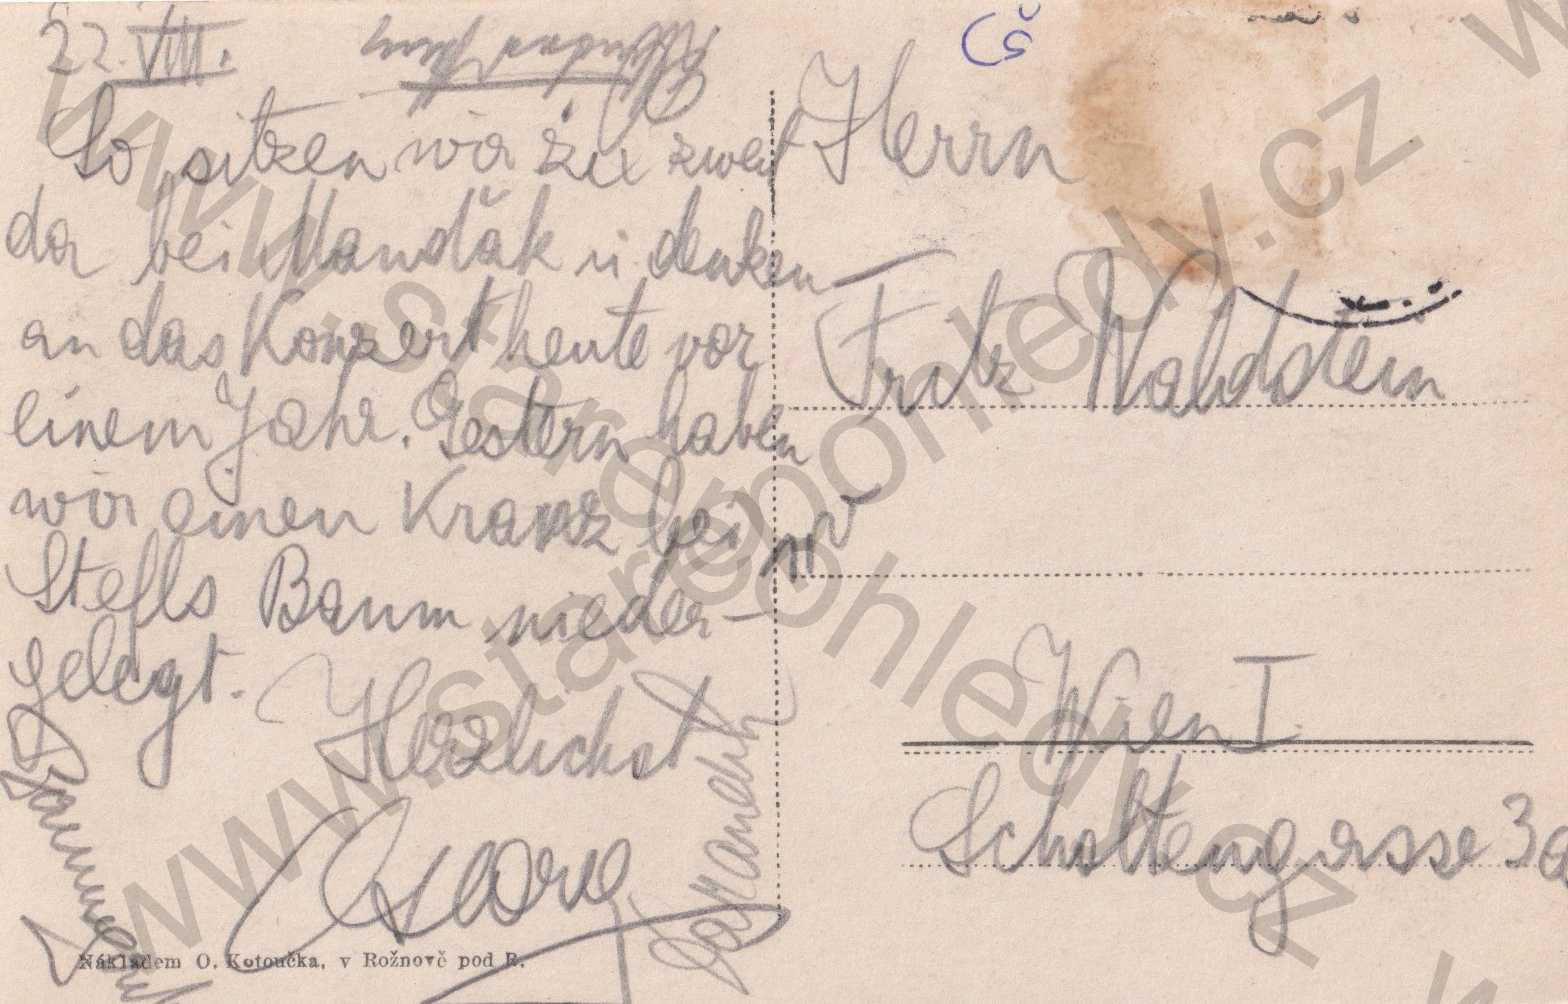 22. VIII.
So sitzen wir zu zweit
da bei Mandťák u. denken
an das Konzert heute vor
einem Jahr. Gestern haben
wir einen Kranz bei
Steffls Baum nieder-
gelegt.
Herzlichst
Georg
Herrn
Fritz Waldstein
Wien I.
Schottengasse 3a
Čs
Nákladem O. Kotoučka, v Rožnově pod R.
www.starepohledy.cz
www.starepohledy.cz